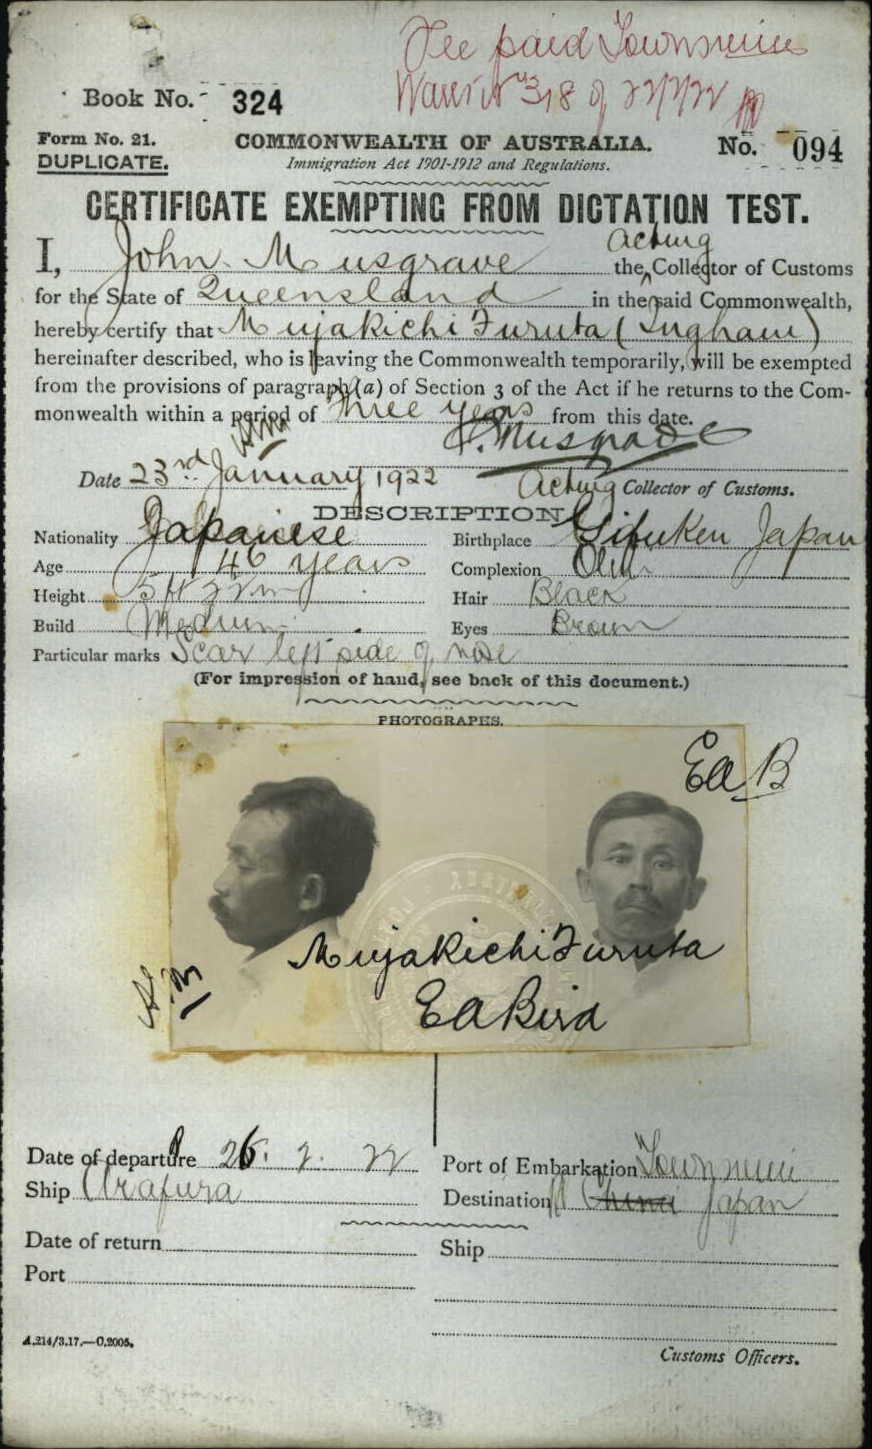 Fee paid Townsville
318 of 22/2/22
Book No. 324
Form No. 21.
DUPLICATE.
COMMONWEALTH OF AUSTRALIA.
Immigration Act 1901-1912 and Regulations.
No. 094
CERTIFICATE EXEMPTING FROM DICTATION TEST.
I, John Musgrave the Acting Collector of Customs
for the State of Queensland in the said Commonwealth,
hereby certify that Mujakichi Furuta (Ingham)
hereinafter described, who is leaving the Commonwealth temporarily, will be exempted
from the provisions of paragraph (a) of Section 3 of the Act if he returns to the Com-
monwealth within a period of Three years from this date.
J. Musgrave
Date 23rd January 1922
Acting Collector of Customs.
DESCRIPTION
Nationality Japanese
Birthplace Gifu Ken Japan
Age 46 years
Complexion Olive
Height 5 ft 2½ in
Hair Black
Build Medium
Eyes Brown
Particular marks Scar left side of nose
(For impression of hand, see back of this document.)
PHOTOGRAPHS.
EAB
Mujakichi Furuta
H.M
EA Bird
Date of departure 26. 2. 22
Port of Embarkation Townsville
Ship Arafura
Destination China Japan
Date of return
Ship
Port
A.214/3.17.—C.2005.
Customs Officers.